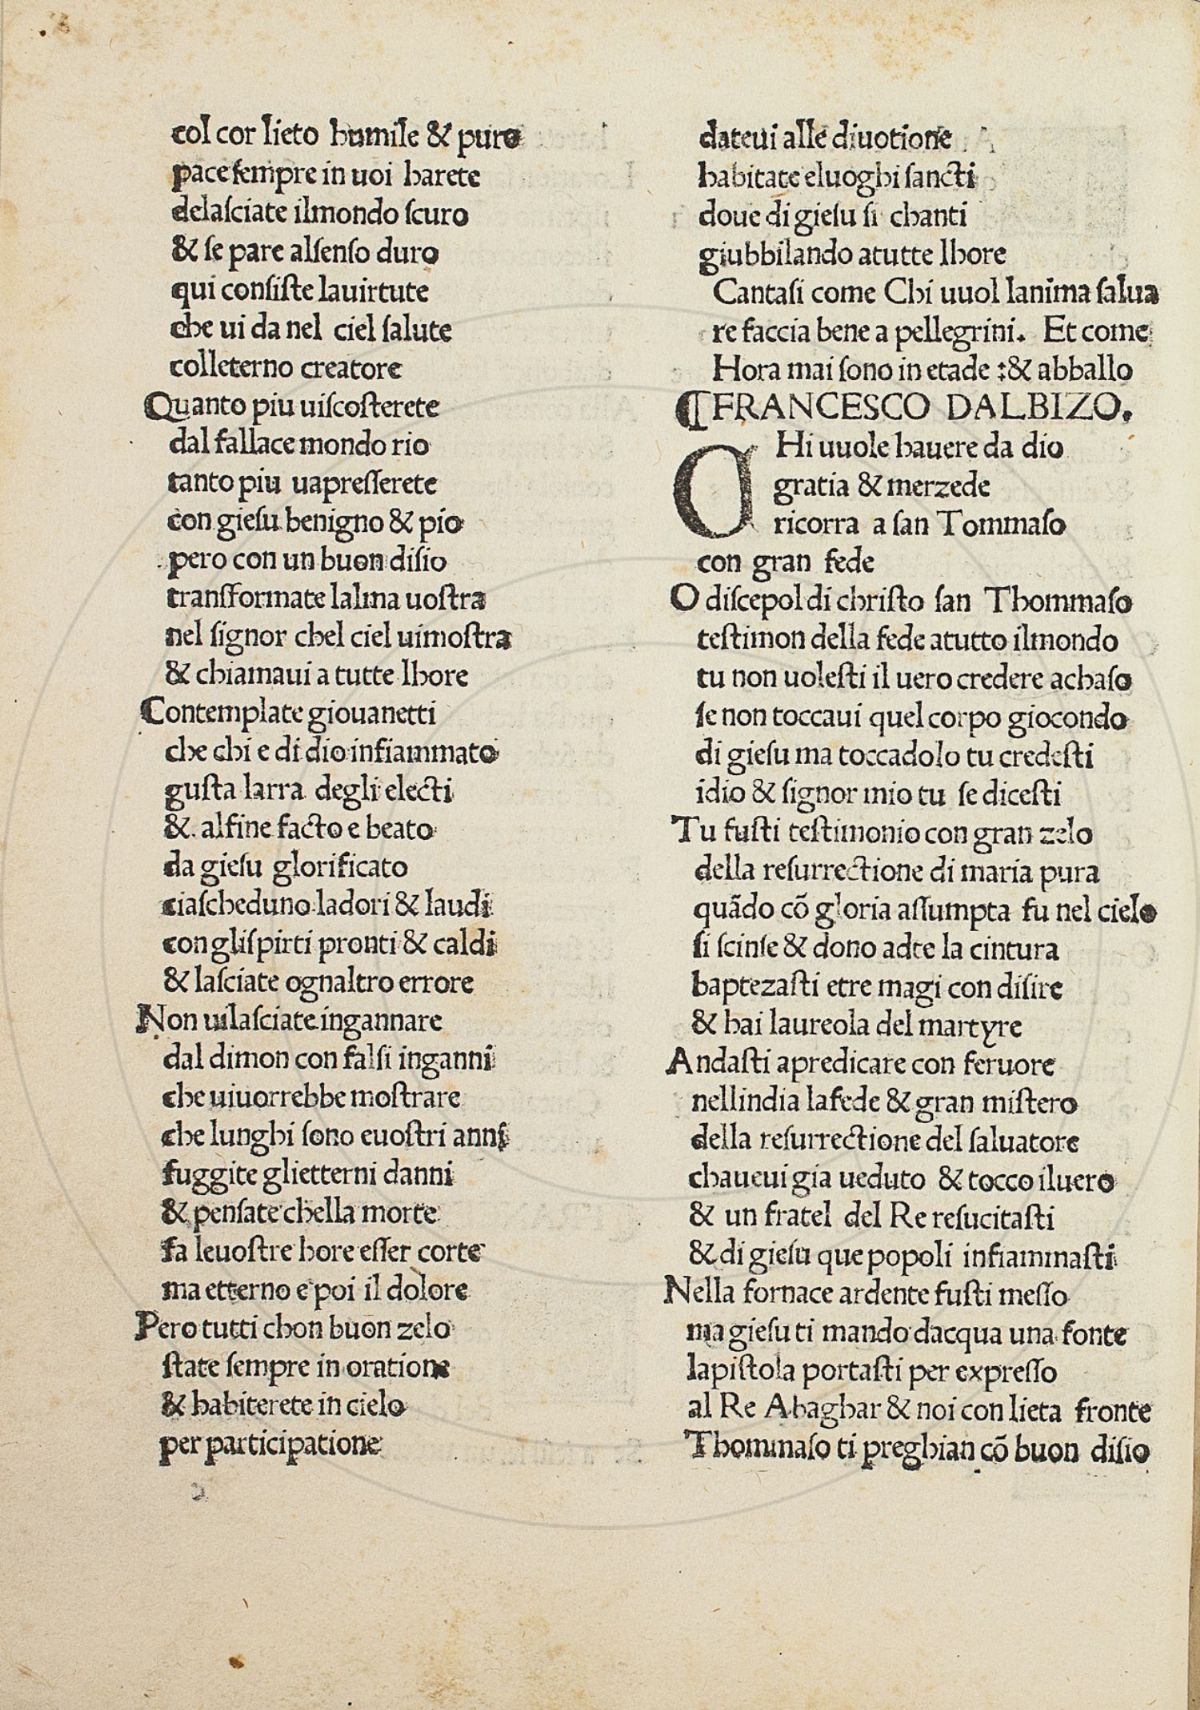 col cor lieto humile & puro
pace sempre in uoi harete
delasciate ilmondo scuro
& se pare alsenso duro
qui consiste lauirtute
che ui da nel ciel salute
colleterno creatore
Quanto piu uiscosterete
dal fallace mondo rio
tanto piu uapresserete
con giesu benigno & pio
pero con un buon disio
transformate lalma uostra
nel signor chel ciel uimostra
& chiamaui a tutte lhore
Contemplate giouanetti
che chi e di dio infiammato
gusta larra degli electi
&. alfine facto e beato
da giesu glorificato
ciascheduno ladori & laudi
con glispirti pronti & caldi
& lasciate ognaltro errore
Non uilasciate ingannare
dal dimon con falsi inganni
che uiuorrebbe mostrare
che lunghi sono euostri anni
fuggite glietterni danni
& pensate chella morte
fa leuostre hore esser corte
ma etterno e poi il dolore
Pero tutti chon buon zelo
state sempre in oratione
& habiterete in cielo
per participatione
dateui alle diuotione
habitate eluoghi sancti
doue di giesu si chanti
giubbilando atutte lhore
Cantasi come Chi uuol lanima salua
re faccia bene a pellegrini. Et come
Hora mai sono in etade :& abballo
¶FRANCESCO DALBIZO.
CHi uuole hauere da dio
gratia & merzede
ricorra a san Tommaso
con gran fede
O discepol di christo san Thommaso
testimon della fede atutto ilmondo
tu non uolesti il uero credere achaso
se non toccaui quel corpo giocondo
di giesu ma toccadolo tu credesti
idio & signor mio tu se dicesti
Tu fusti testimonio con gran zelo
della resurrectione di maria pura
quādo cō gloria assumpta fu nel cielo
si scinse & dono adte la cintura
baptezasti etre magi con disire
& hai laureola del martyre
Andasti apredicare con feruore
nellindia lafede & gran mistero
della resurrectione del saluatore
chaueui gia ueduto & tocco iluero
& un fratel del Re resucitasti
& di giesu que popoli infiammasti
Nella fornace ardente fusti messo
ma giesu ti mando dacqua una fonte
lapistola portasti per expresso
al Re Abaghar & noi con lieta fronte
Thommaso ti preghian cō buon disio